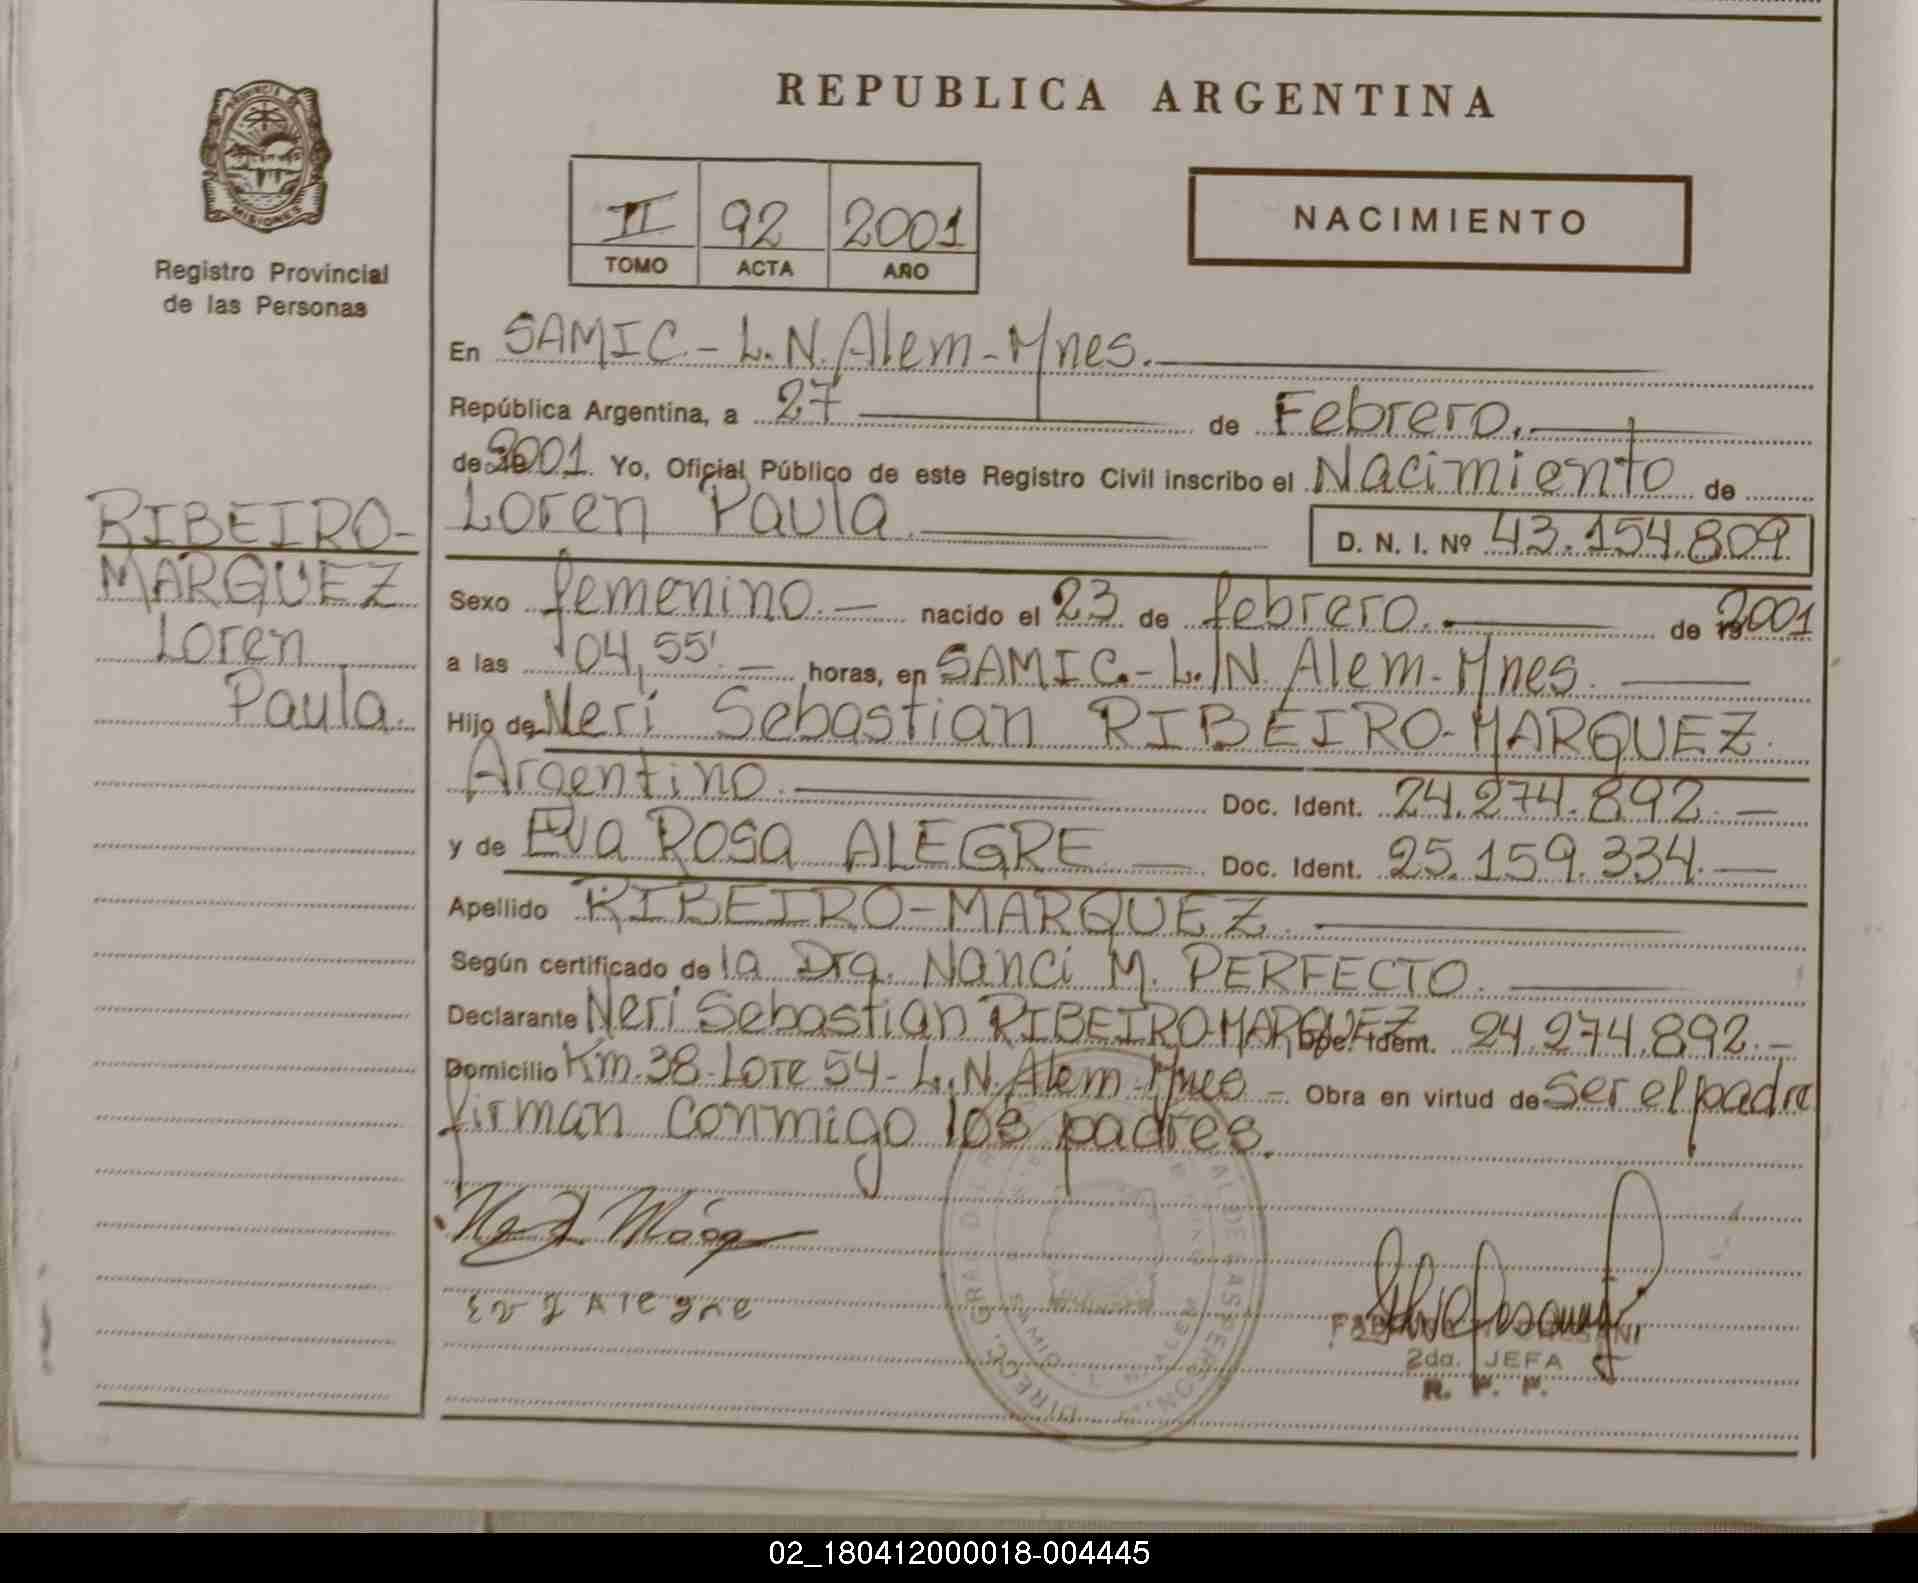 REPUBLICA ARGENTINA
PROVINCIA DE
MISIONES
Registro Provincial
de las Personas
II 92 2001
TOMO ACTA AÑO
NACIMIENTO
En SAMIC.- L.N. Alem - Mnes.
República Argentina, a 27 de Febrero.
de 2001. Yo, Oficial Público de este Registro Civil inscribo el Nacimiento de
Loren Paula.
D. N. I. Nº 43.154.809
RIBEIRO-
MARQUEZ
Loren
Paula.
Sexo femenino. nacido el 23 de febrero. de 2001
a las 04,55'. horas, en SAMIC.- L.N. Alem - Mnes.
Hijo de Neri Sebastian RIBEIRO-MARQUEZ.
Argentino. Doc. Ident. 24.274.892.
y de Eva Rosa ALEGRE Doc. Ident. 25.159.334.
Apellido RIBEIRO-MARQUEZ.
Según certificado de la Dra. Nanci M. PERFECTO.
Declarante Neri Sebastian RIBEIRO-MARQUEZ Doc. Ident. 24.274.892.-
Domicilio Km. 38 - Lote 54 - L.N. Alem - Mnes - Obra en virtud de ser el padre
firman conmigo los padres.
Eva Alegre
2da. JEFA
R. P. P.
02_180412000018-004445